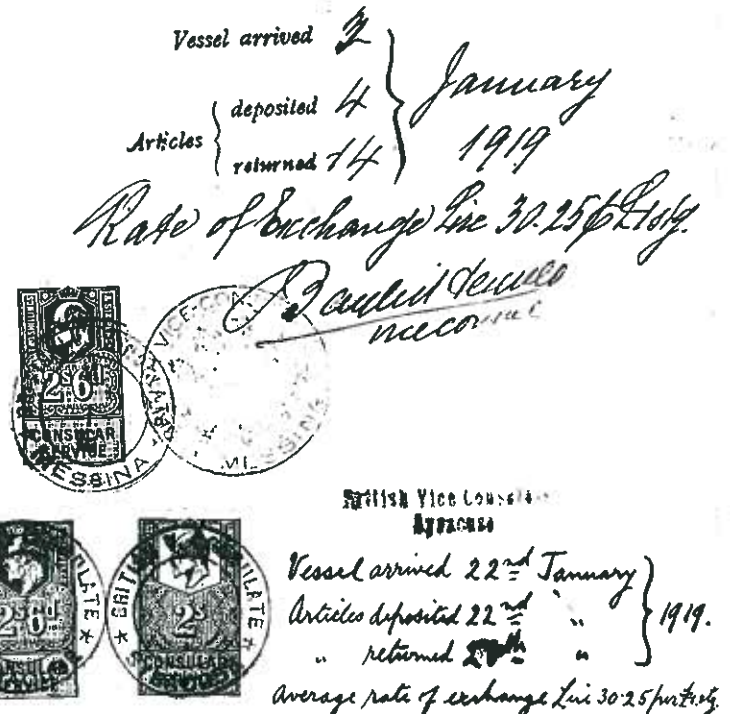 Vessel arrived
Articles { deposited 4
returned 14 } January
1919
Rate of Exchange Lire 30.25 p £ stg.
2s 6d
CONSULAR
SERVICE
MESSINA
VICE-CON
MESSINA
British Vice Consulate
Syracuse
Vessel arrived 22nd January
Articles deposited 22nd " } 1919.
" returned "
Average rate of exchange Lire 30.25 per £ stg.
2s 6d
CONSULAR
SERVICE
ULATE
BRITISH
ULATE
2s
CONSULAR